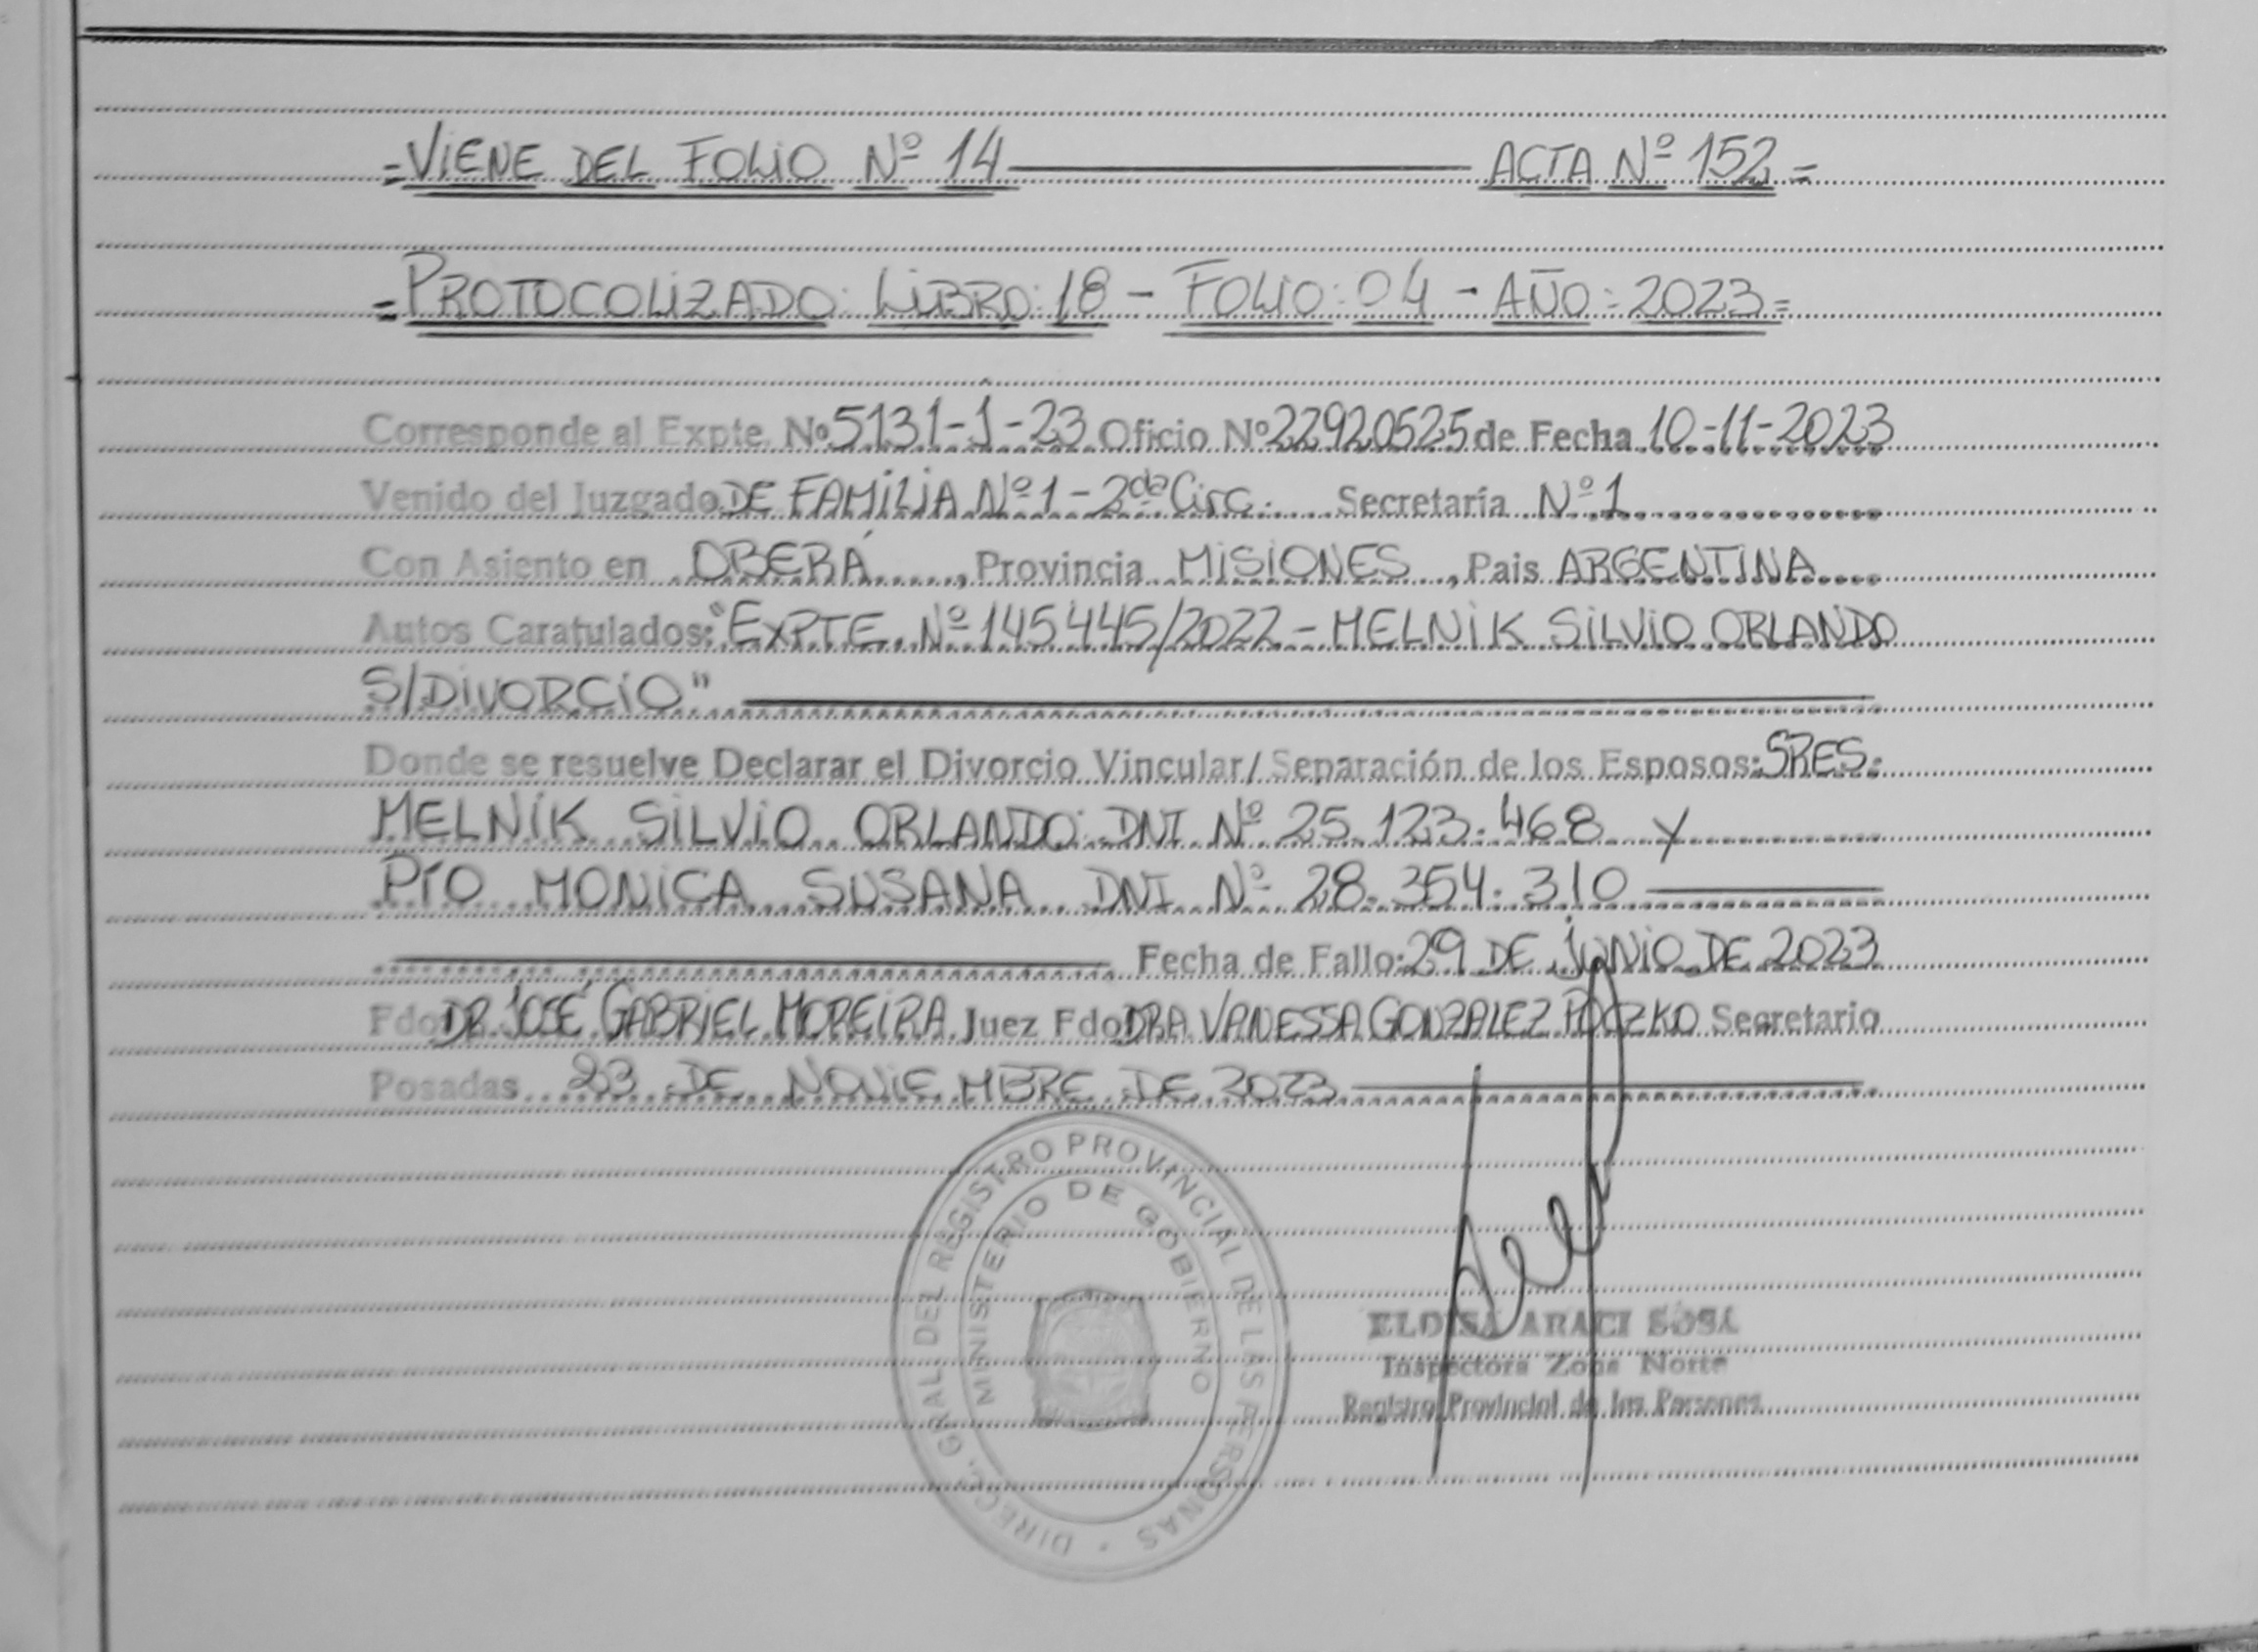 =VIENE DEL FOLIO Nº 14 ACTA Nº 152=
=PROTOCOLIZADO: LIBRO: 18 - FOLIO: 04 - AÑO: 2023=
Corresponde al Expte. Nº 5131-1-23 Oficio Nº 22920525 de Fecha 10-11-2023
Venido del Juzgado DE FAMILIA Nº 1 - 2da Circ. Secretaría Nº 1
Con Asiento en OBERÁ, Provincia MISIONES, Pais ARGENTINA
Autos Caratulados: "EXPTE. Nº 145445/2022 - MELNIK SILVIO ORLANDO
S/DIVORCIO"
Donde se resuelve Declarar el Divorcio Vincular/ Separación de los Esposos: SRES.
MELNIK SILVIO ORLANDO DNI Nº 25.123.468 Y
PÍO MONICA SUSANA DNI Nº 28.354.310
Fecha de Fallo: 29 DE JUNIO DE 2023
Fdo DR JOSÉ GABRIEL MOREIRA Juez Fdo DRA VANESSA GONZALEZ Secretario
Posadas 23 DE NOVIEMBRE DE 2023
DIRECC. GRAL DEL REGISTRO PROVINCIAL DE LAS PERSONAS
MINISTERIO DE GOBIERNO
ELOISA ARACI SOSA
Inspectora Zona Norte
Registro Provincial de las Personas